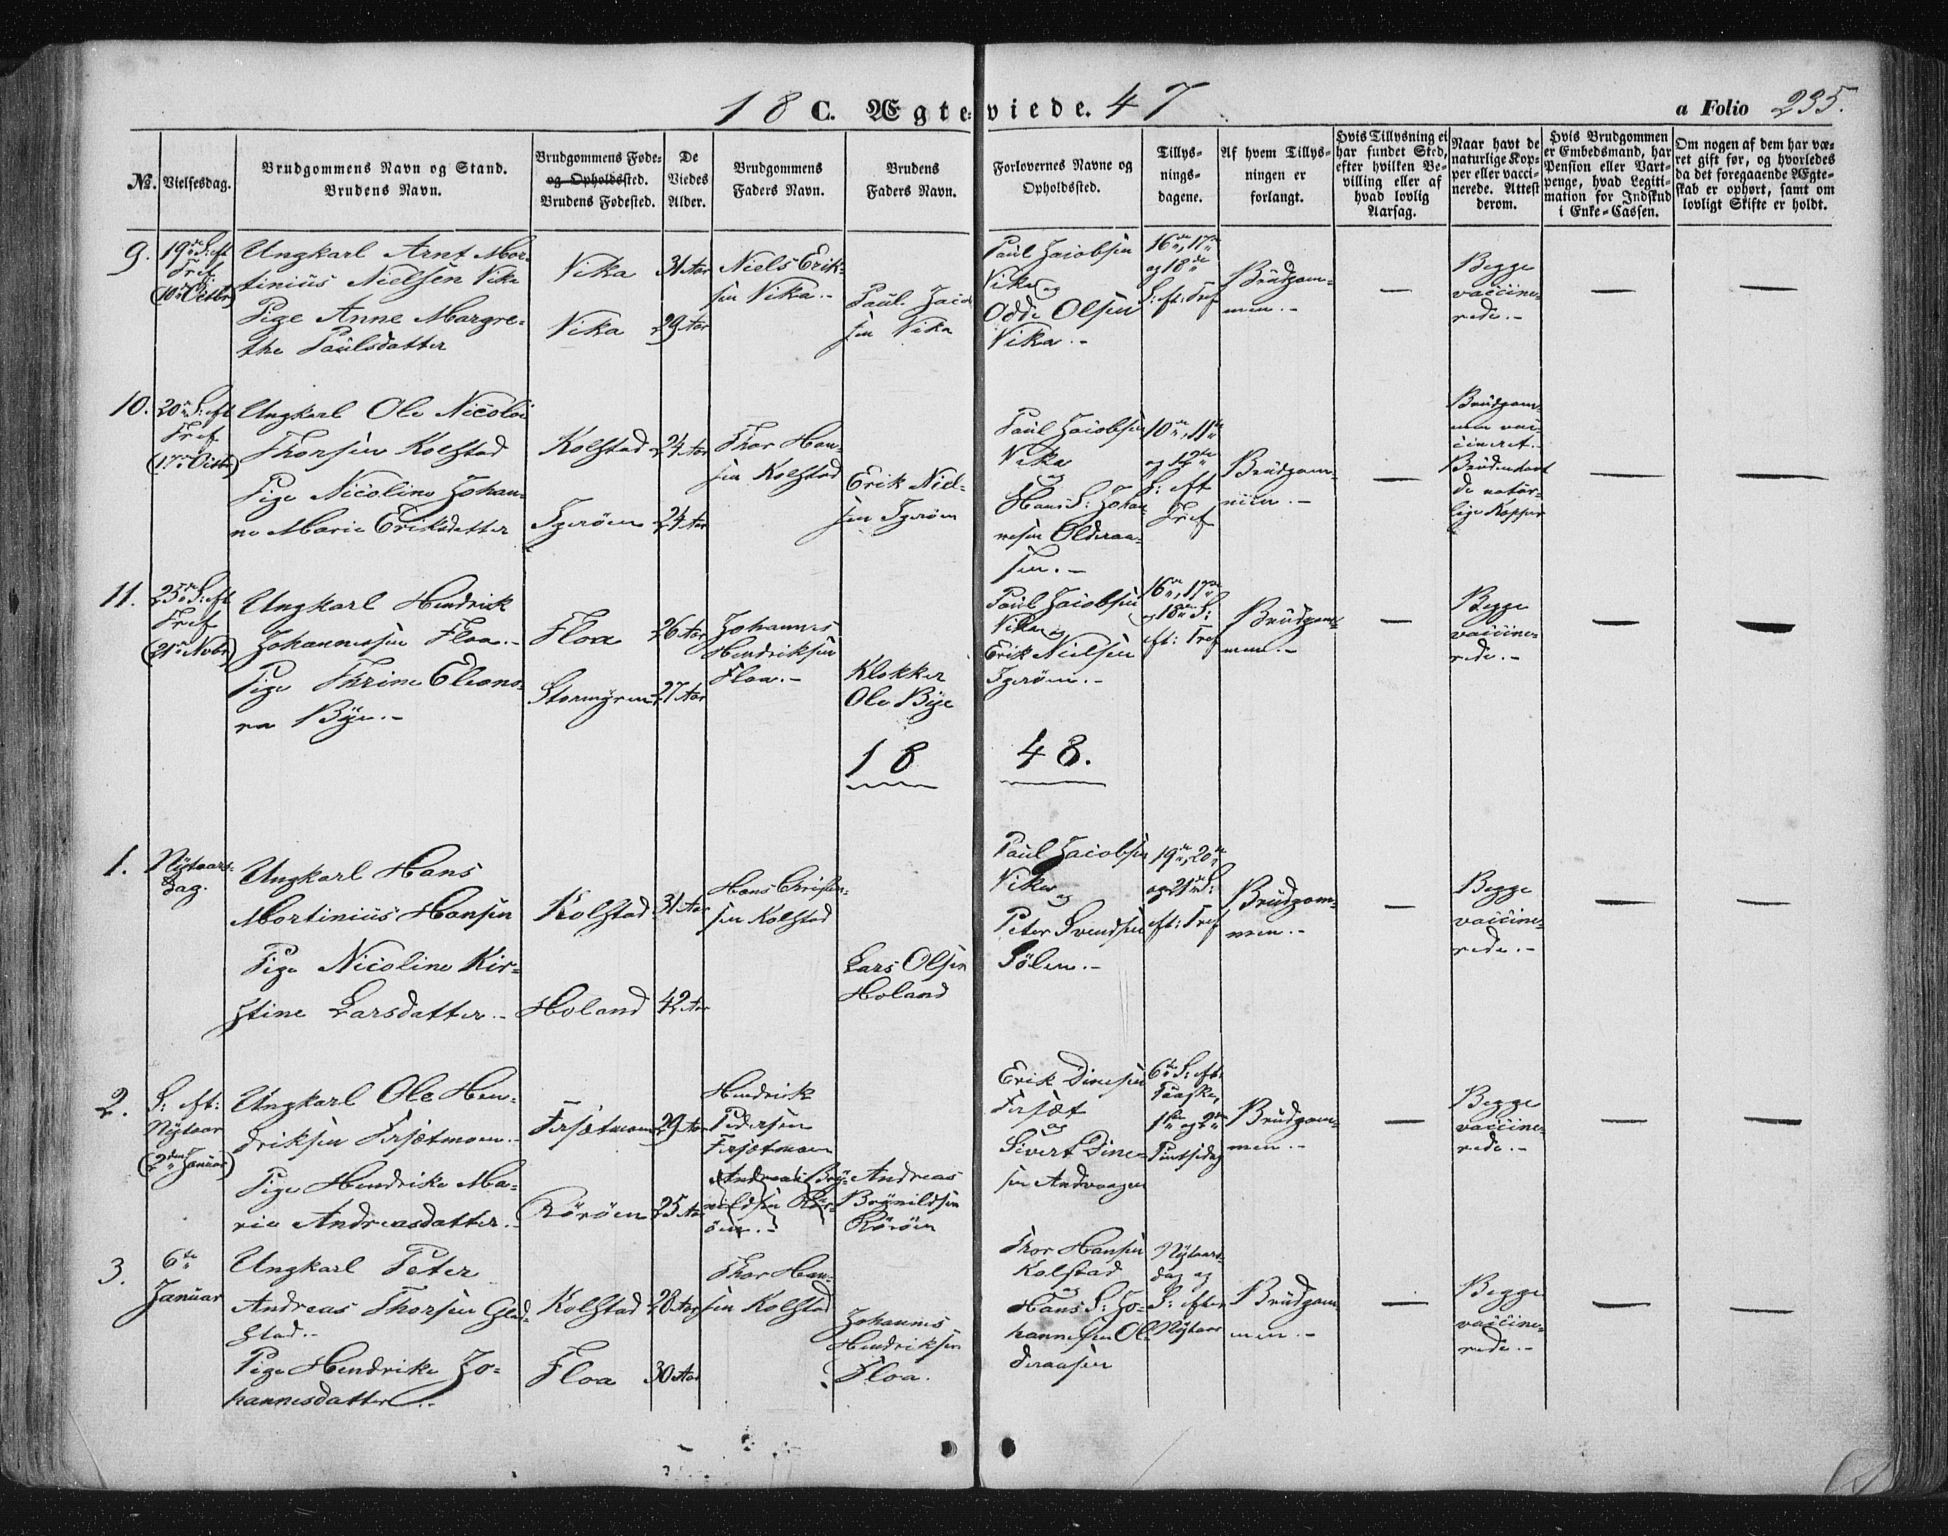 18 C. Ægteviede. 47 a Folio 235.
No. Vielsesdag. Brudgommens Navn og Stand. Brudens Navn. Brudgommens Føde- og Opholdssted. Brudens Fødested. De Viedes Alder. Brudgommens Faders Navn. Brudens Faders Navn. Forlovernes Navne og Opholdssted. Tillysningsdagene. Af hvem Tillysningen er forlangt. Hvis Tillysning ei har fundet Sted, efter hvilken Bevilling eller af hvad lovlig Aarsag. Naar havt de naturlige Kopper eller vaccinerede. Attest derom. Hvis Brudgommen er Embedsmand, har Pension eller Vartpenge, hvad Legitimation for Indskud i Enke-Cassen. Om nogen af dem har været gift før, og hvorledes da det foregaaende Ægteskab er ophørt, samt om lovligt Skifte er holdt.
9. 19de S: eft
Tref
(10de Octbr)
Ungkarl Arnt Mor-
tinius Nielsen Vika
Pige Anne Margre-
the Paulsdatter
Vika
Vika
31 Aar
29 Aar
Niels Erik-
sen Vika.-
Paul Jacob
sen Vika
Paul Jacobsen
Vika og
Odde Olsen
Vika.-
16de, 17de
og 18de
S: ft: Tref
Brudgom-
men.-
—
Begge
vaccine-
rede.-
—
—
10. 20de S: eft
Tref
(17de Octbr)
Ungkarl Ole Nicolai
Thorsen Kolstad
Pige Nicoline Johan-
ne Marie Eriksdatter
Kolstad
Tgerøen
24 Aar
24 Aar
Thor Han-
sen Kolstad
Erik Niel-
sen Tgerøen
Paul Jacobsen
Vika
og
Hans S: Johan
nesen Olderaa-
sen.-
10de, 11te
og 12te
S: eft
Tref
Brudgom-
men.-
—
Brudgom-
men vac-
cineret.-
Bruden havt
de natur-
lige Kopper
—
—
11. 25de S: eft
Tref
(21de Nvbr)
Ungkarl Hendrik
Johannessen Floa.-
Pige Thrine Eleono-
ra Bye.-
Floa
Stormyren
26 Aar
27 Aar
Johannes
Hendriksen
Floa.-
Klokker
Ole Bye
Paul Jacobsen
Vika og
Erik Nielsen
Tgerøen.-
16de, 17de
og 18de S:
eft: Tref
Brudgom-
men.-
—
Begge
vaccine-
rede.-
—
—
18 48.
1. Nytaars-
dag.
Ungkarl Hans
Mortinius Hansen
Pige Nicoline Kir-
stine Larsdatter.-
Kolstad
Holand
31 Aar
42 Aar
Hans Christen-
sen Kolstad
Lars Olsen
Holand
Paul Jacobsen
Vika
og
Peter Svendsen
Sølen.-
19de, 20de
og 21de S:
eft: Tref
Brudgom-
men.-
—
Begge
vaccine-
rede.-
—
—
2. S: eft:
Nytaar
(2den Januar)
Ungkarl Ole Hen-
driksen Forsætmoen.-
Pige Hendrike Ma-
rie Andreasdatter.-
Forsætmoen
Rörøen
29 Aar
25 Aar
Hendrik
Pedersen
Forsætmoen
Andreas Bry-
nildsen Rör-
öen.-
Andreas
Brynildsen
Rörøen
Erik Dinesen
Forsæt
og
Sivert Dine-
sen Andvaagen
6te S: eft:
Paaske,
1ste og 2den
Pintsedag
Brudgom-
men.-
—
Begge
vaccine-
rede.-
—
—
3. 6te
Januar
Ungkarl Peter
Andreas Thorsen Glad-
stad.-
Pige Hendrike Jo-
hannesdatter.-
Kolstad
Floa
28 Aar
30 Aar
Thor Han-
sen Kolstad
Johannes
Hendriksen
Floa.
Thor Hansen
Kolstad
og
Hans S: Jo-
hannessen Ol-
deraasen
Nytaars-
dag og
S: efter
Nytaar
Brudgom
men.-
—
Begge
vaccine-
rede.-
—
—